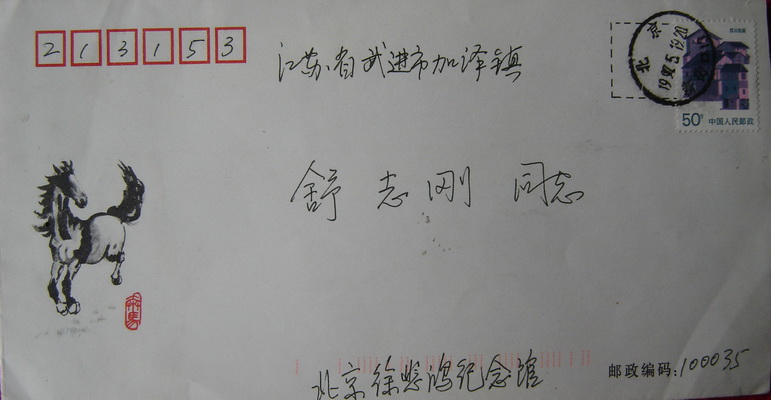 213153
江苏省武进市加泽镇
舒志刚 同志
北京徐悲鸿纪念馆
邮政编码:100035
北京
50分 中国人民邮政